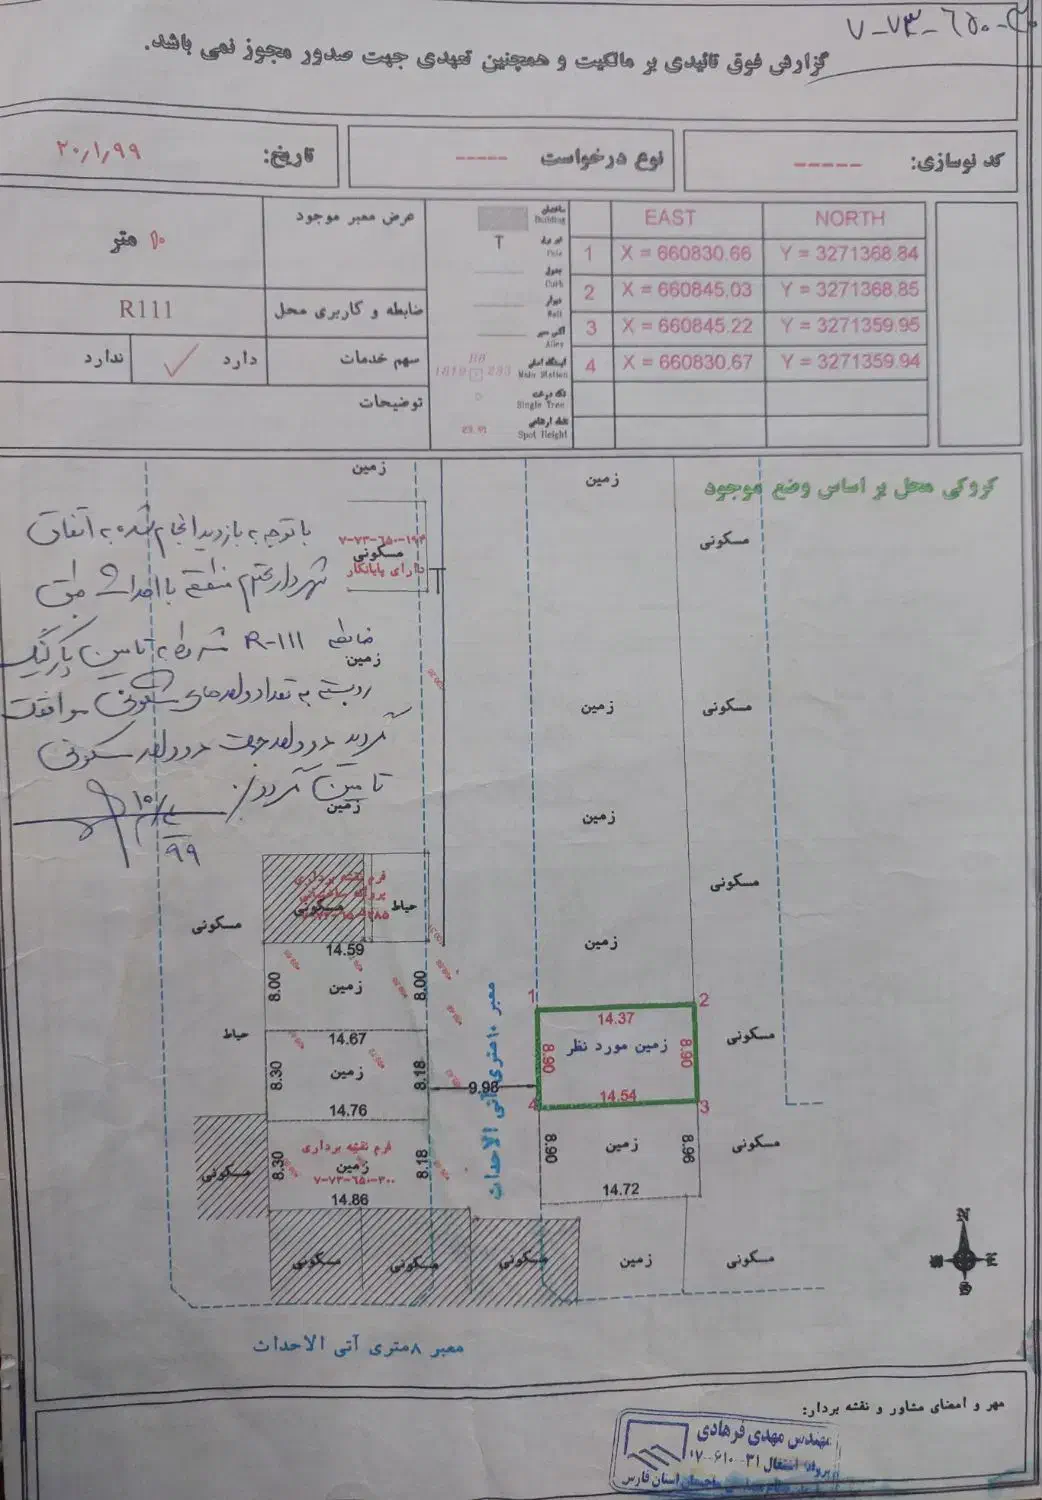 ۷-۷۳-۶۵۰-
گزارش فوق تائیدی بر مالکیت و همچنین تعهدی جهت صدور مجوز نمی باشد.
کد نوسازی: -----
نوع درخواست -----
تاریخ: ۲۰٫۱٫۹۹
EAST NORTH
1 X = 660830.66 Y = 3271368.84
2 X = 660845.03 Y = 3271368.85
3 X = 660845.22 Y = 3271359.95
4 X = 660830.67 Y = 3271359.94
ساختمان
Building
تیر برق
Pole
جدول
Curb
دیوار
Wall
Alley
ایستگاه اصلی
Main Station
BB
1819 233
تک درخت
Single Tree
نقطه ارتفاعی
Spot Height
عرض معبر موجود
۱۰ متر
ضابطه و کاربری محل
R111
سهم خدمات
دارد
ندارد
توضیحات
کروکی محل بر اساس وضع موجود
زمین
زمین
مسکونی
۷-۷۳-۶۵۰-۱۹۴
مسکونی
دارای پایانکار
با توجه به بازدید انجام شده به اتفاق
شهردار محترم منطقه با احداث طبق
ضابطه R-111 مشروط به تامین پارکینگ
زمین
بسته به تعداد واحدهای مسکونی موافقت
گردید دو واحد جهت دو واحد مسکونی
تامین گردد.
زمین
۹۹
زمین
مسکونی
زمین
مسکونی
زمین
فرم نقشه برداری
پروانه ساختمانی
مسکونی
حیاط
مسکونی
14.59
8.00
زمین
8.00
حیاط
14.67
8.30
زمین
8.18
14.76
فرم نقشه برداری
زمین
۷-۷۳-۶۵۰-۳۰۰
8.30
8.18
14.86
مسکونی
مسکونی
مسکونی
مسکونی
معبر ۱۰متری آتی الاحداث
9.98
1
2
14.37
زمین مورد نظر
8.90
8.90
14.54
4
3
مسکونی
8.90
زمین
8.96
مسکونی
14.72
زمین
مسکونی
N
E
S
W
معبر ۸متری آتی الاحداث
مهر و امضای مشاور و نقشه بردار:
مهندس مهدی فرهادی
پروانه اشتغال ۳۱-۶۱۰-۱۷
استان فارس